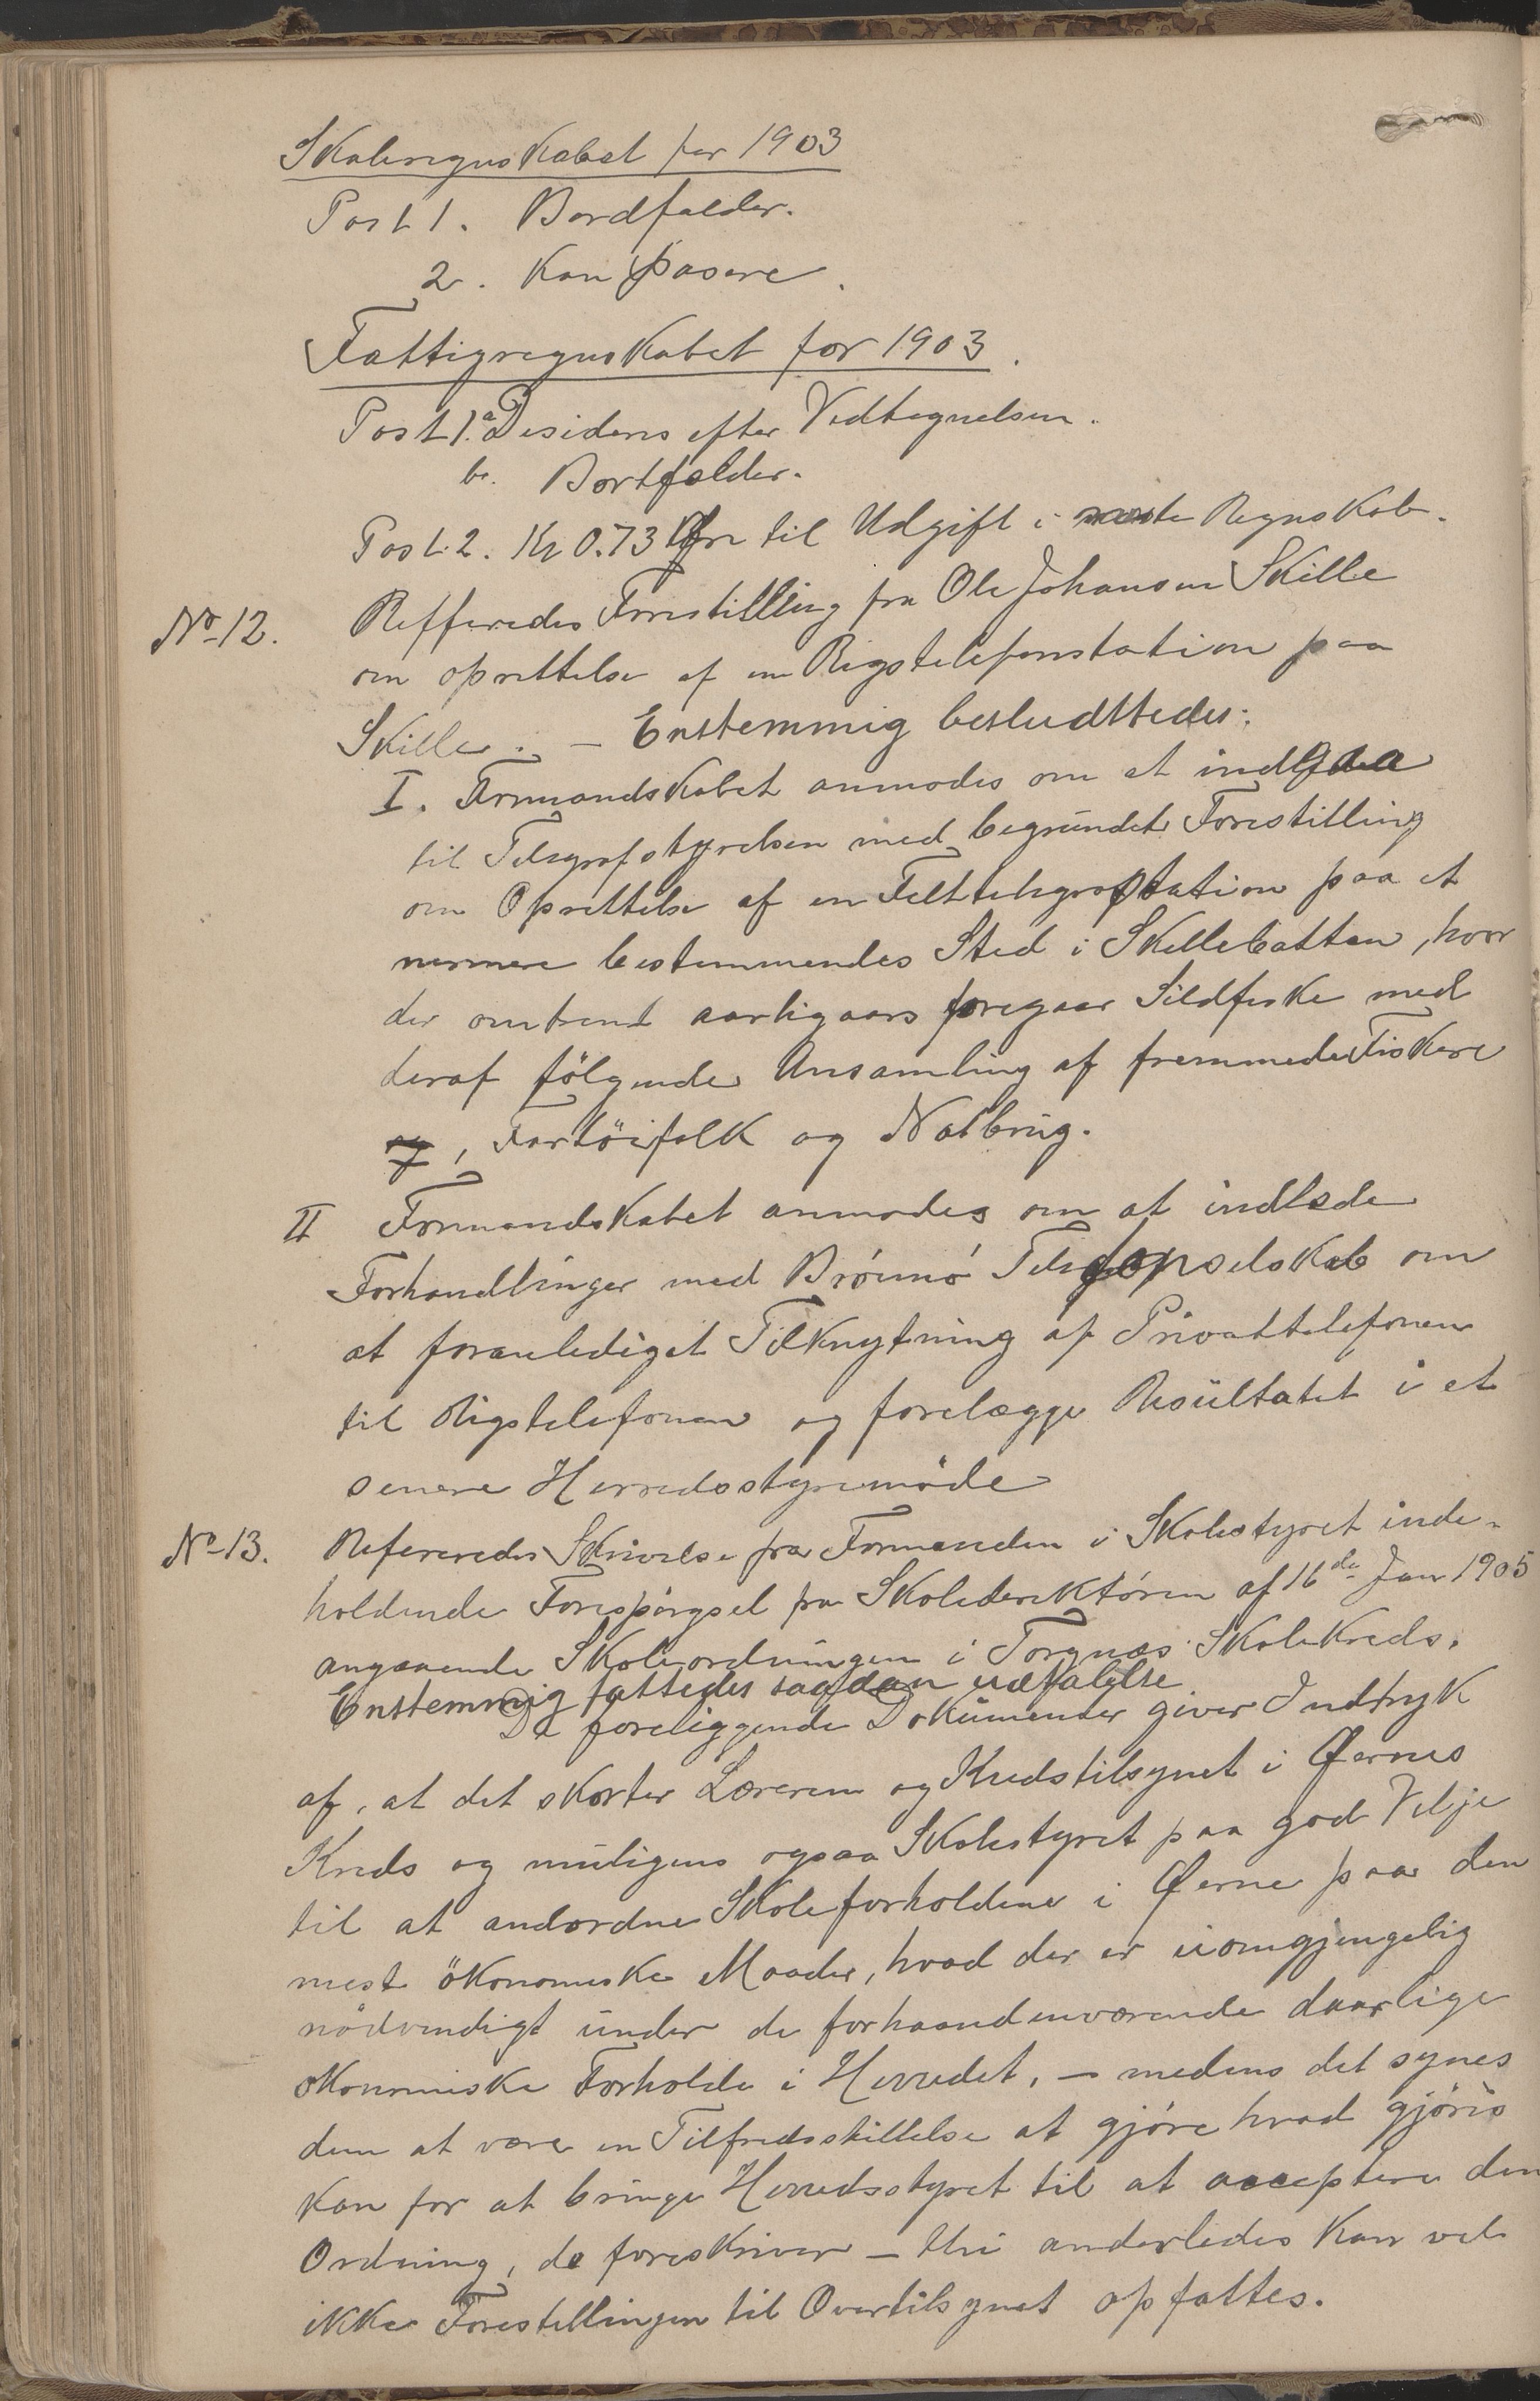 Skoleregnskabet for 1903
Post 1. Bordfalder.
2. Kan pasere.
Fattigregnskabet for 1903.
Post 1.a Desideres efter Vedtegnelsen.
b. Bortfalder.
Post. 2. Kr 0.73 Øre til Udgift i næste Regnskab.
No 12. Refferedes Forestilling fra Ole Johansen Skille
om oprettelse af en Rigstelefonstation paa
Skille. – Enstemmig besludttedes:
I. Formandskabet anmodes om at indgaa
til Telegrafstyrelsen med begrundet Forestilling
om Oprettelse af en Felttelegrafstation paa et
nærmere bestemmendes Sted i Skillebotten, hvor
der omtrent aarligaars foregaar Sildfiske med
deraf følgende Ansamling af fremmede Fiskere
og, Fartöifolk og Notbrug.
II Formandskabet anmodes om at indlede
Forhandlinger med Brönnö Telefonselskab om
at foranlediget Tilknytning af Privattelefonen
til Rigstelefonen og forelægge Resultatet i et
senere Herredsstyremöde
No 13. Refereredes Skrivelse fra Formanden i Skolestyret inde-
holdende Forespörgsel fra Skoledirektören af 16de Jan 1905
angaaende Skoleordningen i Torgnæs Skolekreds.
Enstemmig fattedes saadan udtalelse
De foreliggende Dokumenter giver Indtryk
af, at det skorter Læreren og Kredstilsynet i Øernes
Kreds og muligens ogsaa Skolestyret paa god Vilje
til at andordne Skoleforholdene i Øerne paa den
mest ökonomiske Maade, hvad der er uomgjengelig
nödvendigt under de forhaandenværende daarlige
økonomiske Forholde i Herredet, – medens det synes
dem at være en Tilfredsstillelse at gjöre hvad gjöres
kan for at bringe Herredsstyret til at acceptere den
Ordning, de foreskriver – thi anderledes kan vel
ikke Forestillingen til Overtilsynet opfattes.